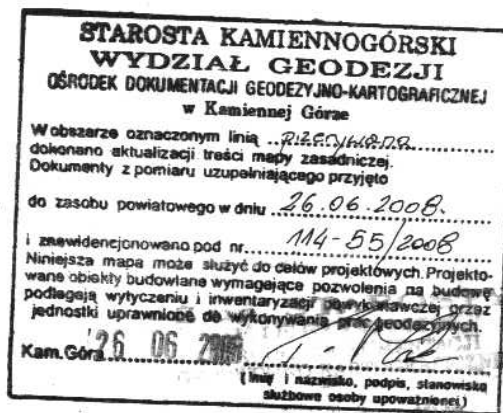 STAROSTA KAMIENNOGÓRSKI
WYDZIAŁ GEODEZJI
OŚRODEK DOKUMENTACJI GEODEZYJNO-KARTOGRAFICZNEJ
w Kamiennej Górze
W obszarze oznaczonym linią ..przerywaną..
dokonano aktualizacji treści mapy zasadniczej.
Dokumenty z pomiaru uzupełniającego przyjęto
do zasobu powiatowego w dniu 26.06.2008.
i zaewidencjonowano pod nr 114-55/2008
Niniejsza mapa może służyć do celów projektowych. Projekto-
wane obiekty budowlane wymagające pozwolenia na budowę
podlegają wytyczeniu i inwentaryzacji powykonawczej przez
jednostki uprawnione do wykonywania prac geodezyjnych.
Kam. Góra 26 06 2008
(imię i nazwisko, podpis, stanowisko
służbowe osoby upoważnionej)